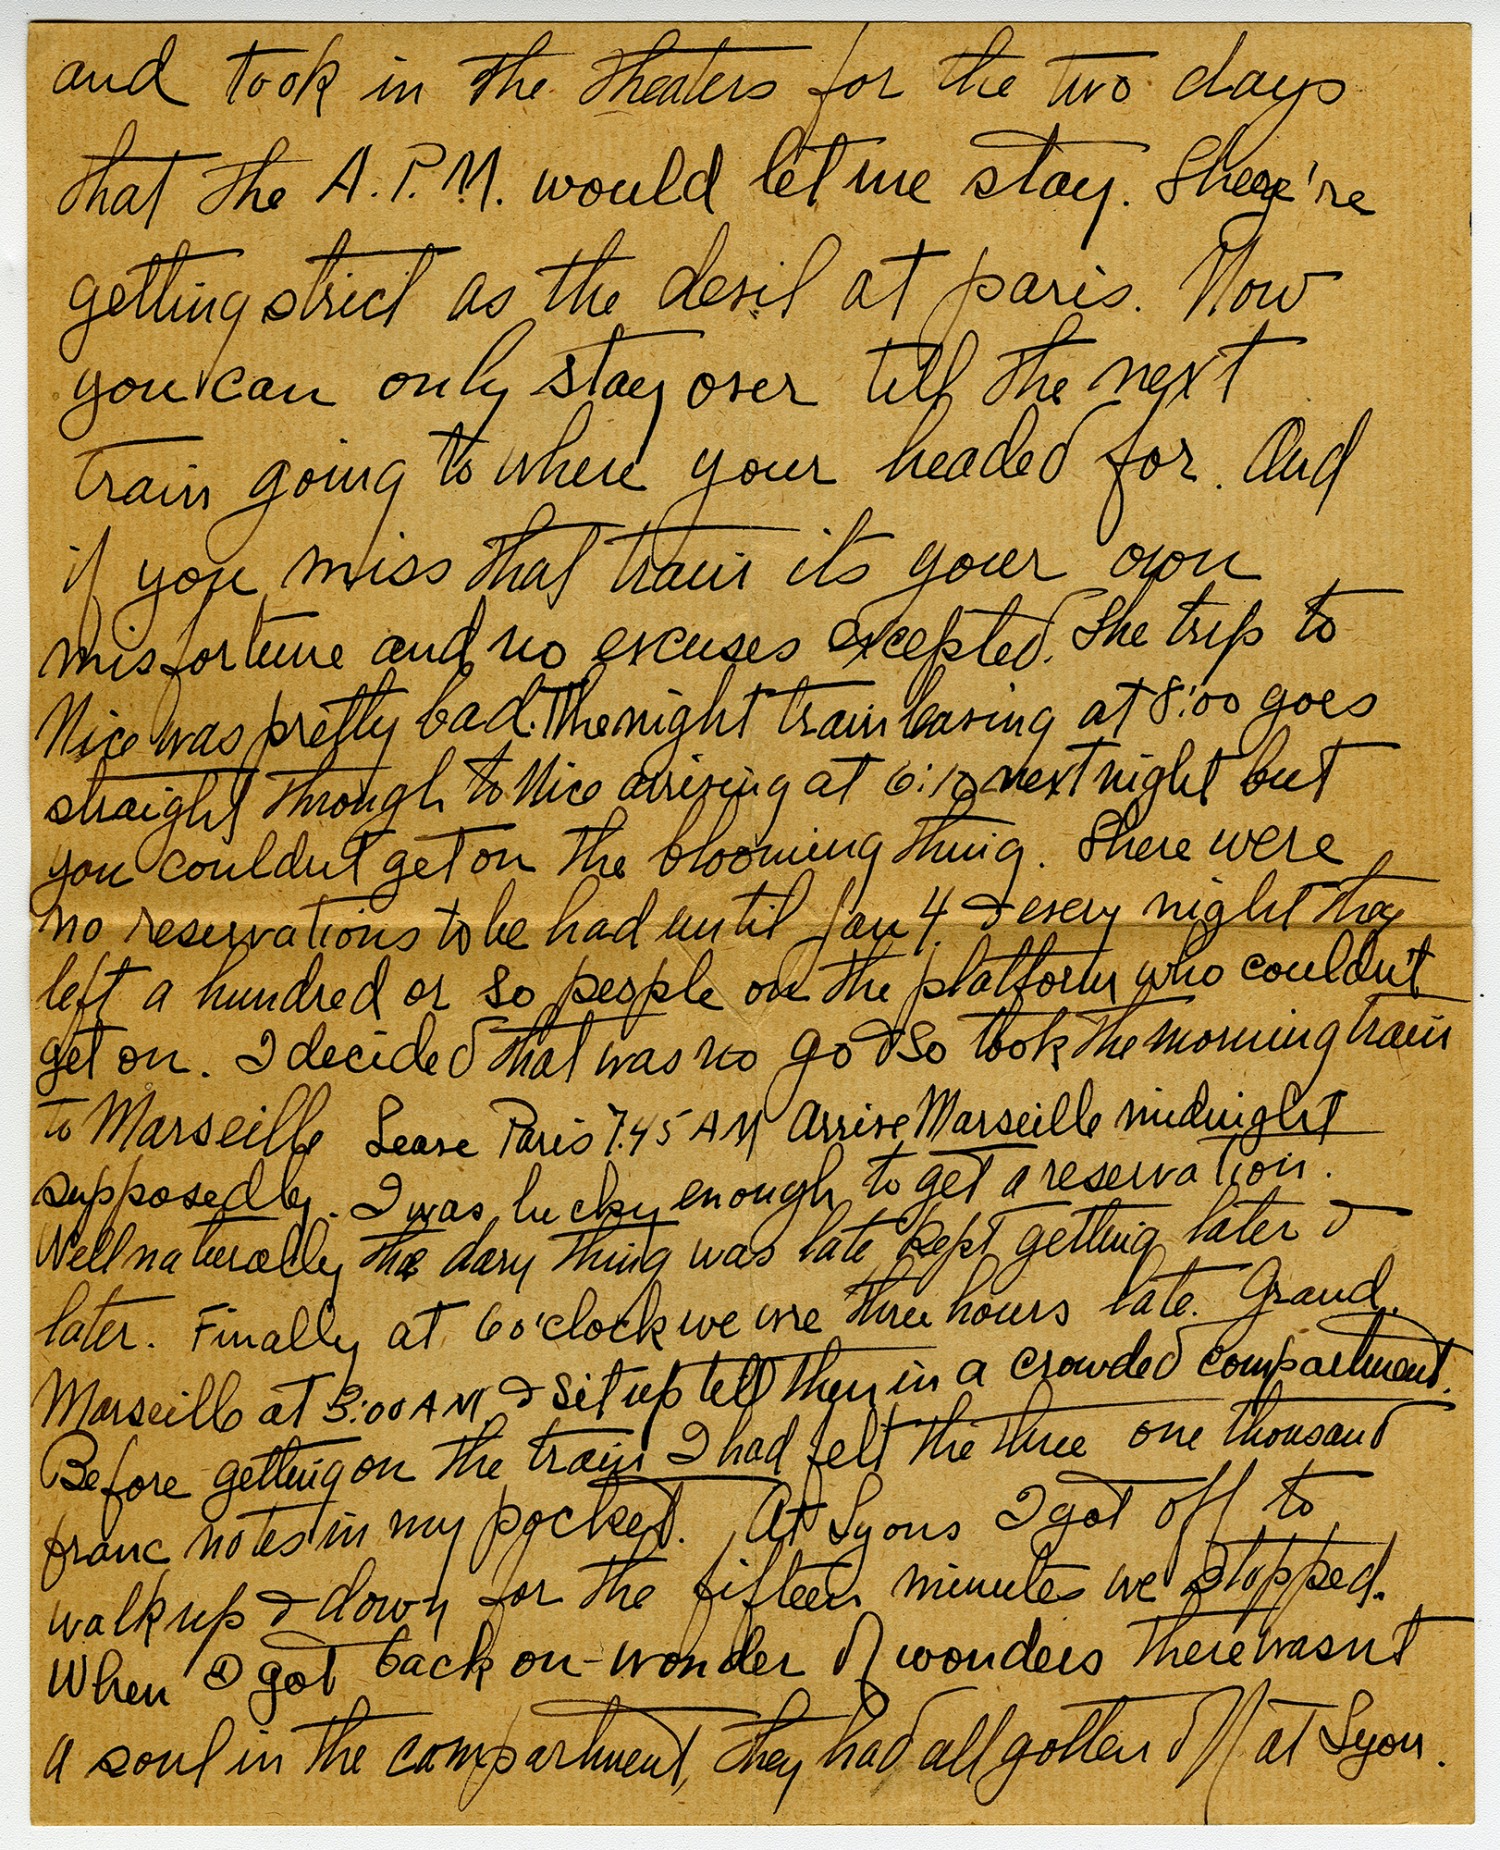 and took in the theaters for the two days
that the A.P.M. would let me stay. They're
getting strict as the devil at paris. Now
you can only stay over till the next
train going to where your headed for. And
if you miss that train its your own
misfortune and no excuses excepted. The trip to
Nice was pretty bad. The night train leaving at 8:00 goes
straight through to Nice arriving at 6:10 next night but
you couldnt get on the blooming thing. There were
no reservations to be had until Jan 4. & every night they
left a hundred or so people on the platform who couldn't
get on. I decided that was no go & so took the morning train
to Marseille Leave Paris 7.45 AM Arrive Marseille midnight
supposedly. I was lucky enough to get a reservation.
Well naturally the darn thing was late kept getting later &
later. Finally at 6 o'clock we wre three hours late. Grand.
Marseille at 3:00 AM. & sit up till then in a crowded compartment.
Before getting on the train I had felt the three one thousand
franc notes in my pocket. At Lyons I got off to
walk up & down for the fifteen minutes we stopped.
When I got back on - wonder of wonders there wasnt
a soul in the compartment, they had all gotten off at Lyon.